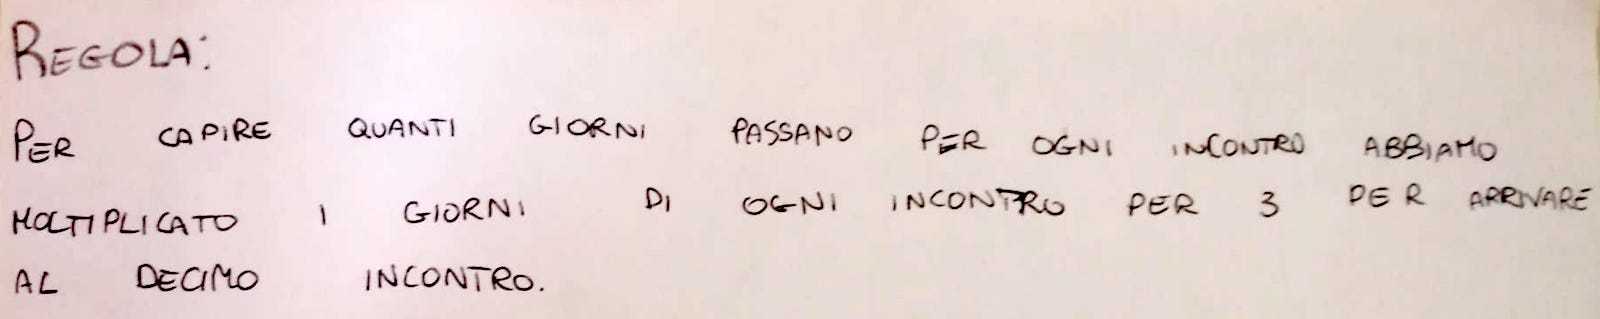 REGOLA:
PER CAPIRE QUANTI GIORNI PASSANO PER OGNI INCONTRO ABBIAMO
MOLTIPLICATO I GIORNI DI OGNI INCONTRO PER 3 PER ARRIVARE
AL DECIMO INCONTRO.